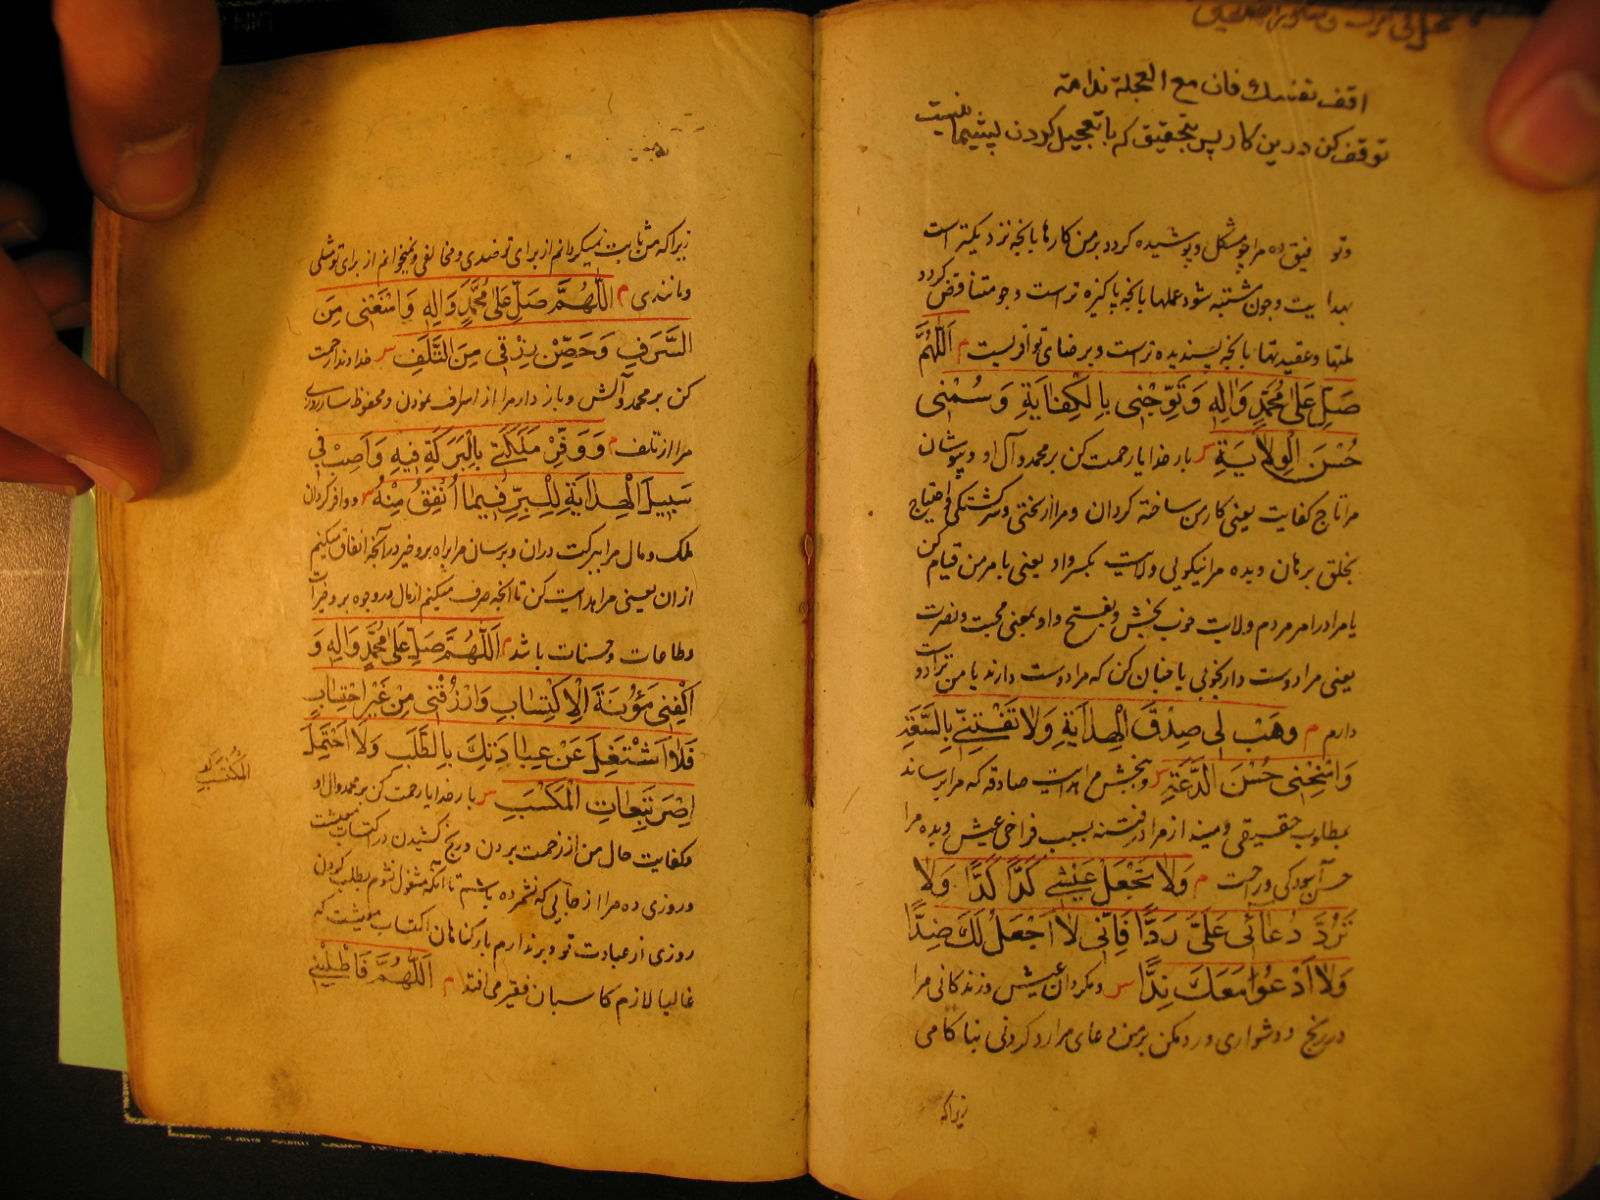 اقف نفسك فان مع العجلة ندامة
توقف کن درین کار پس بتحقیق که با تعجیل کردن پشیمانیست
وتو فیق ده مرا چو مشکل و پوشیده کردد بر من کارها بانجه نزدیکتر است
بهدایت وچون مشتبه شود عملها بانجه پاکیزه تر است وچو متناقض کردد
ملتها وعقیدتها بانجه پسندیده تر است وبرضای تو اقربست م اَللّٰهُمَّ
صَلِّ عَلىٰ مُحَمَّدٍ وَاٰلِهِ وَتَوِّجْنِى بِالْكِفٰايَةِ وَسُمْنِى
حُسْنَ الْوِلاٰيَةِ س بار خدایا رحمت کن بر محمد و آل او و بپوشان
مرا تاج کفایت یعنی کار من ساخته کردان ومرا از سختی وسرکشتکی و احتیاج
بخلق برهان وبده مرا نیکویی ولایت بکسر واو یعنی بامر من قیام کن
یا مرا در امر مردم ولایت خوب بخش وبفتح واو بمعنی محبت ونصرت
یعنی مرا دوست دار بخوبی یا چنان کن که مرا دوست دارند یا من ترا دوست
دارم م وَهَبْ لِى صِدْقَ الْهِدٰايَةِ وَلاٰ تَفْتِنِّى بِالسَّعَةِ
وَامْنَحْنِى حُسْنَ الدَّعَةِ س وببخش مرا هدایت صادقه که مرا برساند
بمطلوب حقیقی ومینداز مرا در فتنه بسبب فراخی عیش وبده مرا
حسن آسودکی وراحت م وَلاٰ تَجْعَلْ عَيْشِى كَدًّا كَدًّا وَلاٰ
تَرُدَّ دُعٰائِى عَلَىَّ رَدًّا فَاِنِّى لاٰ اَجْعَلُ لَكَ ضِدًّا
وَلاٰ اَدْعُوا مَعَكَ نِدًّا س ومکردان عیش وزندکانی مرا
در رنج ودشواری ورد مکن بر من دعای مرا رد کردنی بناکامی
زیراکه
زیراکه من ثابت نمیکردانم از برای تو ضدی ومخالفی ونمیخوانم از برای تو مثلی
ومانندی م اَللّٰهُمَّ صَلِّ عَلىٰ مُحَمَّدٍ وَاٰلِهِ وَامْنَعْنِى مِنَ
السَّرَفِ وَحَصِّنْ رِزْقِى مِنَ التَّلَفِ س خداوندا رحمت
کن بر محمد وآلش وباز دار مرا از اسراف نمودن ومحفوظ ساز روزی
مرا از تلف م وَوَفِّرْ مَلَكَتِى بِالْبَرَكَةِ فِيهِ وَاَصِبْ بِى
سَبِيلَ الْهِدٰايَةِ لِلْبِرِّ فِيمٰا اُنْفِقُ مِنْهُ س ووافر کردان
ملک ومال مرا ببرکت دران وبرسان مرا براه بر وخیر در آنچه انفاق میکنم
از ان یعنی مرا هدایت کن تا انچه صرف میکنم از مال در وجوه بر وخیرات
وطاعات وحسنات باشد م اَللّٰهُمَّ صَلِّ عَلىٰ مُحَمَّدٍ وَاٰلِهِ وَ
اكْفِنِى مَؤُنَةَ الْاِكْتِسٰابِ وَارْزُقْنِى مِنْ غَيْرِ احْتِسٰابٍ
فَلاٰ اَشْتَغِلَ عَنْ عِبٰادَتِكَ بِالطَّلَبِ وَلاٰ اَحْتَمِلَ
اِصْرَ تَبِعٰاتِ الْمَكْسَبِ س بار خدایا رحمت کن بر محمد وال او
وکفایت حال من از زحمت بردن ورنج کشیدن در اکتساب معیشت
وروزی ده مرا از جایی که نشمرده باشم تا آنکه مشغول نشوم بطلب کردن
روزی از عبادت تو وبرندارم بار کناهان اکتساب معیشت که
غالبا لازم کاسبان فقیر می افتد م اَللّٰهُمَّ فَاَطْلِبْنِى